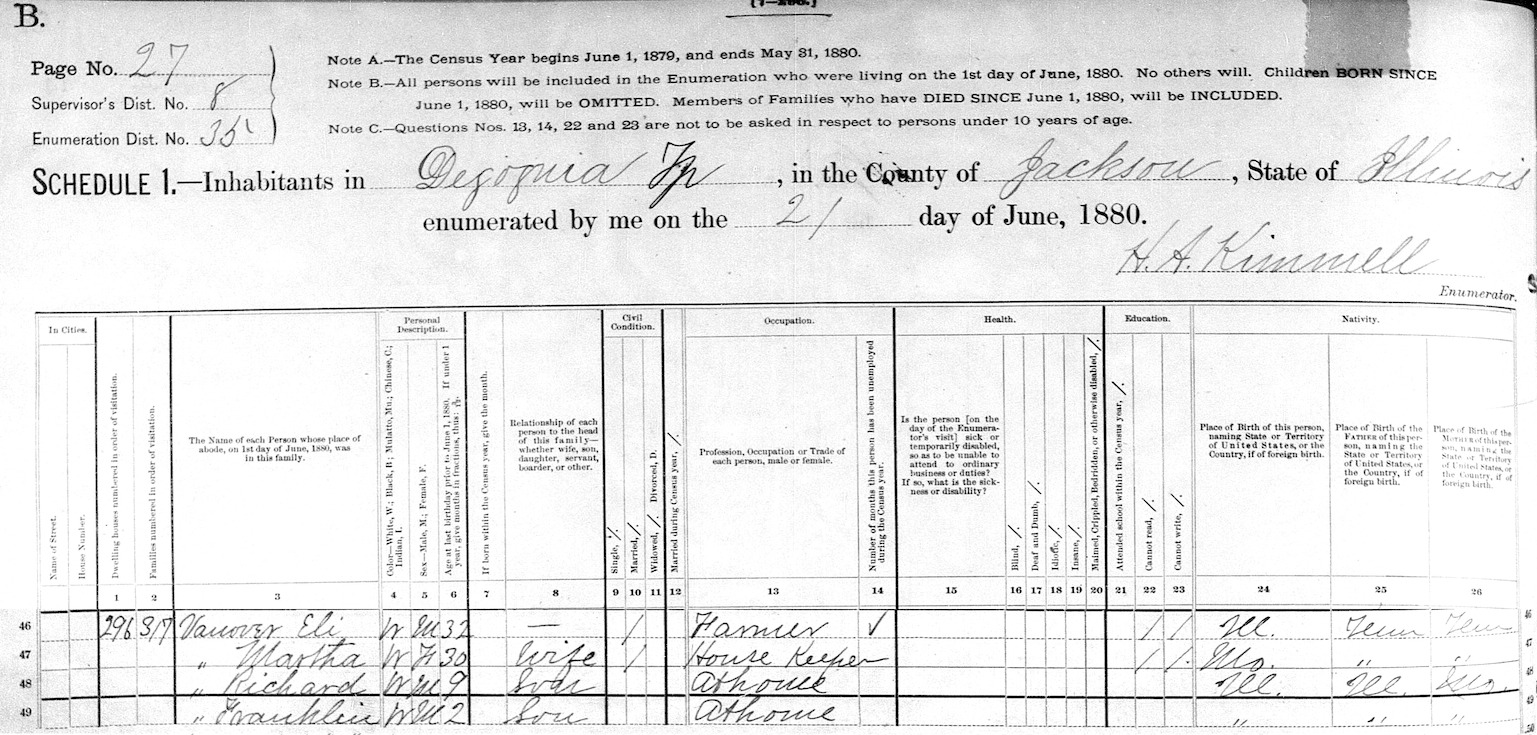 B.
Page No. 27
Supervisor's Dist. No. 8
Enumeration Dist. No. 35
Note A.—The Census Year begins June 1, 1879, and ends May 31, 1880.
Note B.—All persons will be included in the Enumeration who were living on the 1st day of June, 1880. No others will. Children BORN SINCE
June 1, 1880, will be OMITTED. Members of Families who have DIED SINCE June 1, 1880, will be INCLUDED.
Note C.—Questions Nos. 13, 14, 22 and 23 are not to be asked in respect to persons under 10 years of age.
SCHEDULE 1.—Inhabitants in Degognia Tp, in the County of Jackson, State of Illinois
enumerated by me on the 21 day of June, 1880.
H. A. Kimmell
Enumerator.
In Cities.
Personal Description.
Civil Condition.
Occupation.
Health.
Education.
Nativity.
Name of Street.
House Number.
Dwelling houses numbered in order of visitation.
Families numbered in order of visitation.
The Name of each Person whose place of
abode, on 1st day of June, 1880, was
in this family.
Color—White, W.; Black, B.; Mulatto, Mu.; Chinese, C.;
Indian, I.
Sex—Male, M.; Female, F.
Age at last birthday prior to June 1, 1880. If under 1
year, give months in fractions, thus: 3/12.
If born within the Census year, give the month.
Relationship of each
person to the head
of this family—
whether wife, son,
daughter, servant,
boarder, or other.
Single, /.
Married, /.
Widowed, /. Divorced, D.
Married during Census year, /.
Profession, Occupation or Trade of
each person, male or female.
Number of months this person has been unemployed
during the Census year.
Is the person [on the
day of the Enumera-
tor's visit] sick or
temporarily disabled,
so as to be unable to
attend to ordinary
business or duties?
If so, what is the sick-
ness or disability?
Blind, /.
Deaf and Dumb, /.
Idiotic, /.
Insane, /.
Maimed, Crippled, Bedridden, or otherwise disabled, /.
Attended school within the Census year, /.
Cannot read, /.
Cannot write, /.
Place of Birth of this person,
naming State or Territory
of United States, or the
Country, if of foreign birth.
Place of Birth of the
FATHER of this per-
son, naming the
State or Territory
of United States, or
the Country, if of
foreign birth.
Place of Birth of the
MOTHER of this per-
son, naming the
State or Territory
of United States, or
the Country, if of
foreign birth.
1 2 3 4 5 6 7 8 9 10 11 12 13 14 15 16 17 18 19 20 21 22 23 24 25 26
46 296 317 Vanover Eli W M 32 — / Farmer ✓ / / Ill. Tenn Tenn 46
47 " Martha W F 30 Wife / House Keeper / / Mo. " " 47
48 " Richard W M 9 Son At home Ill. Ill. Mo. 48
49 " Franklin W M 2 Son At home " " " 49
50